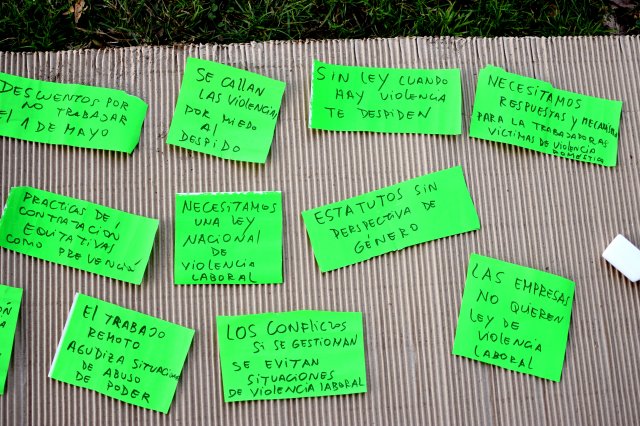 DESCUENTOS POR
NO TRABAJAR
EL 1 DE MAYO
SE CALLAN
LAS VIOLENCIAS
POR MIEDO
AL
DESPIDO
SIN LEY CUANDO
HAY VIOLENCIA
TE DESPIDEN
NECESITAMOS
RESPUESTAS Y MECANISMOS
PARA LA TRABAJADORAS
VÍCTIMAS DE VIOLENCIA
DOMÉSTICA
PRACTICAS DE
CONTRATACIÓN
EQUITATIVAS
COMO PREVENCIÓN
NECESITAMOS
UNA LEY
NACIONAL
DE
VIOLENCIA
LABORAL
ESTATUTOS SIN
PERSPECTIVA DE
GÉNERO
EL TRABAJO
REMOTO
AGUDIZA SITUACIONES
DE ABUSO
DE PODER
LOS CONFLICTOS
SI SE GESTIONAN
SE EVITAN
SITUACIONES
DE VIOLENCIA LABORAL
LAS EMPRESAS
NO QUIEREN
LEY DE
VIOLENCIA
LABORAL